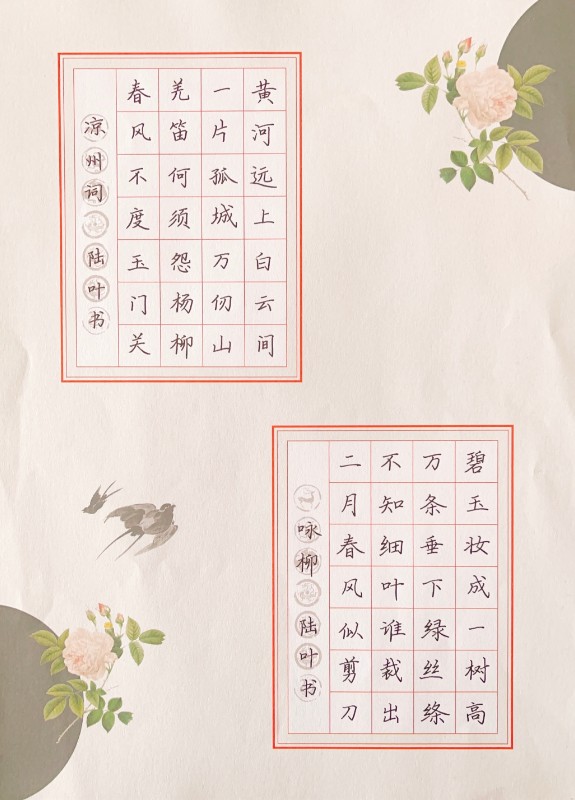 黄河远上白云间
一片孤城万仞山
羌笛何须怨杨柳
春风不度玉门关
凉州词
陆叶书
碧玉妆成一树高
万条垂下绿丝绦
不知细叶谁裁出
二月春风似剪刀
咏柳
陆叶书